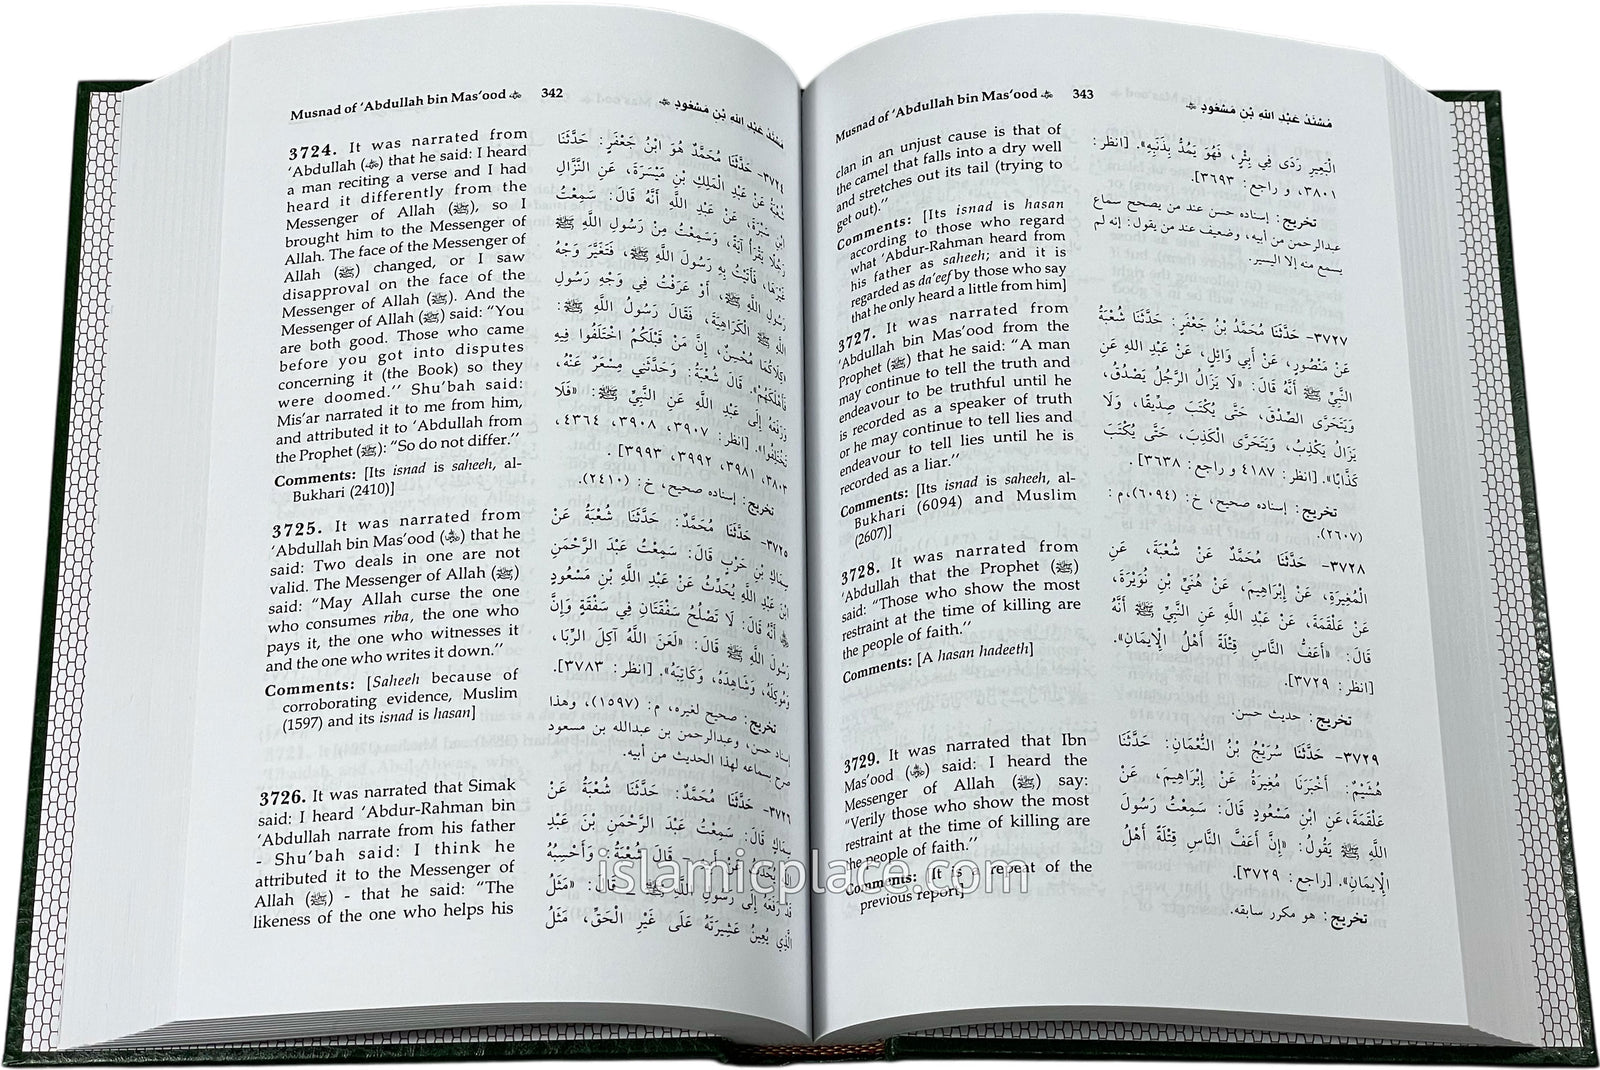 Musnad of 'Abdullah bin Mas'ood
342
مُسْنَدُ عَبْدِ اللهِ بْنِ مَسْعُودٍ
3724. It was narrated from
'Abdullah (رضي الله عنه) that he said: I heard
a man reciting a verse and I had
heard it differently from the
Messenger of Allah (ﷺ), so I
brought him to the Messenger of
Allah. The face of the Messenger of
Allah (ﷺ) changed, or I saw
disapproval on the face of the
Messenger of Allah (ﷺ). And the
Messenger of Allah (ﷺ) said: "You
are both good. Those who came
before you got into disputes
concerning it (the Book) so they
were doomed.'' Shu'bah said:
Mis'ar narrated it to me from him,
and attributed it to 'Abdullah from
the Prophet (ﷺ): "So do not differ.''
Comments: [Its isnad is saheeh, al-
Bukhari (2410)]
3725. It was narrated from
'Abdullah bin Mas'ood (رضي الله عنه) that he
said: Two deals in one are not
valid. The Messenger of Allah (ﷺ)
said: "May Allah curse the one
who consumes riba, the one who
pays it, the one who witnesses it
and the one who writes it down.''
Comments: [Saheeh because of
corroborating evidence, Muslim
(1597) and its isnad is hasan]
3726. It was narrated that Simak
said: I heard 'Abdur-Rahman bin
'Abdullah narrate from his father
- Shu'bah said: I think he
attributed it to the Messenger of
Allah (ﷺ) - that he said: "The
likeness of the one who helps his
٣٧٢٤- حَدَّثَنَا مُحَمَّدٌ هُوَ ابْنُ جَعْفَرٍ: حَدَّثَنَا
شُعْبَةُ عَنْ عَبْدِ الْمَلِكِ بْنِ مَيْسَرَةَ، عَنِ النَّزَّالِ
ابْنِ سَبْرَةَ، عَنْ عَبْدِ اللَّهِ أَنَّهُ قَالَ: سَمِعْتُ
رَجُلًا يَقْرَأُ آيَةً، وَسَمِعْتُ مِنْ رَسُولِ اللَّهِ ﷺ
غَيْرَهَا، فَأَتَيْتُ بِهِ رَسُولَ اللَّهِ ﷺ، فَتَغَيَّرَ وَجْهُ
رَسُولِ اللَّهِ ﷺ، أَوْ عَرَفْتُ فِي وَجْهِ رَسُولِ
اللَّهِ ﷺ الْكَرَاهِيَةَ، فَقَالَ رَسُولُ اللَّهِ ﷺ:
«كِلَاكُمَا مُحْسِنٌ، إِنَّ مَنْ قَبْلَكُمُ اخْتَلَفُوا فِيهِ
فَأَهْلَكَهُمْ». قَالَ شُعْبَةُ: وَحَدَّثَنِي مِسْعَرٌ عَنْهُ،
وَرَفَعَهُ إِلَى عَبْدِ اللَّهِ عَنِ النَّبِيِّ ﷺ: «فَلَا
تَخْتَلِفُوا». [انظر: ٣٩٠٧، ٣٩٠٨، ٤٣٦٤،
٣٨٠٣، ٣٩٨١، ٣٩٩٢، ٣٩٩٣].
تخريج: إسناده صحيح، خ: (٢٤١٠).
٣٧٢٥- حَدَّثَنَا مُحَمَّدٌ: حَدَّثَنَا شُعْبَةُ عَنْ
سِمَاكِ بْنِ حَرْبٍ قَالَ: سَمِعْتُ عَبْدَ الرَّحْمَنِ
ابْنَ عَبْدِ اللَّهِ يُحَدِّثُ عَنْ عَبْدِ اللَّهِ بْنِ مَسْعُودٍ
رضي الله عنه أَنَّهُ قَالَ: لَا تَصْلُحُ سَفْقَتَانِ فِي سَفْقَةٍ وَإِنَّ
رَسُولَ اللَّهِ ﷺ قَالَ: «لَعَنَ اللَّهُ آكِلَ الرِّبَا،
وَمُوكِلَهُ، وَشَاهِدَهُ، وَكَاتِبَهُ». [انظر: ٣٧٨٣].
تخريج: صحيح لغيره، م: (١٥٩٧)، وهذا
إسناد حسن، وعبدالرحمن بن عبدالله بن مسعود
صرح بسماعه لهذا الحديث من أبيه.
٣٧٢٦- حَدَّثَنَا مُحَمَّدٌ: حَدَّثَنَا شُعْبَةُ عَنْ
سِمَاكٍ قَالَ: سَمِعْتُ عَبْدَ الرَّحْمَنِ بْنَ عَبْدِ
اللَّهِ يُحَدِّثُ عَنْ أَبِيهِ قَالَ شُعْبَةُ: وَأَحْسِبُهُ
قَدْ رَفَعَهُ إِلَى رَسُولِ اللَّهِ ﷺ قَالَ: «مَثَلُ
الَّذِي يُعِينُ عَشِيرَتَهُ عَلَى غَيْرِ الْحَقِّ، مَثَلُ
Musnad of 'Abdullah bin Mas'ood
343
مُسْنَدُ عَبْدِ اللهِ بْنِ مَسْعُودٍ
clan in an unjust cause is that of
the camel that falls into a dry well
and stretches out its tail (trying to
get out).''
Comments: [Its isnad is hasan
according to those who regard
what 'Abdur-Rahman heard from
his father as saheeh; and it is
regarded as da'eef by those who say
that he only heard a little from him]
3727. It was narrated from
'Abdullah bin Mas'ood from the
Prophet (ﷺ) that he said: "A man
may continue to tell the truth and
endeavour to be truthful until he
is recorded as a speaker of truth
or he may continue to tell lies and
endeavour to tell lies until he is
recorded as a liar.''
Comments: [Its isnad is saheeh, al-
Bukhari (6094) and Muslim
(2607)]
3728. It was narrated from
'Abdullah that the Prophet (ﷺ)
said: "Those who show the most
restraint at the time of killing are
the people of faith.''
Comments: [A hasan hadeeth]
3729. It was narrated that Ibn
Mas'ood (رضي الله عنه) said: I heard the
Messenger of Allah (ﷺ) say:
"Verily those who show the most
restraint at the time of killing are
the people of faith.''
Comments: [It is a repeat of the
previous report]
الْبَعِيرِ رَدَى فِي بِئْرٍ، فَهُوَ يَمُدُّ بِذَنَبِهِ». [انظر:
٣٨٠١، و راجع: ٣٦٩٣].
تخريج: إسناده حسن عند من يصحح سماع
عبدالرحمن من أبيه، وضعيف عند من يقول: إنه لم
يسمع منه إلا اليسير.
٣٧٢٧- حَدَّثَنَا مُحَمَّدُ بْنُ جَعْفَرٍ: حَدَّثَنَا شُعْبَةُ
عَنْ مَنْصُورٍ، عَنْ أَبِي وَائِلٍ، عَنْ عَبْدِ اللهِ عَنِ
النَّبِيِّ ﷺ أَنَّهُ قَالَ: «لَا يَزَالُ الرَّجُلُ يَصْدُقُ،
وَيَتَحَرَّى الصِّدْقَ، حَتَّى يُكْتَبَ صِدِّيقًا، وَلَا
يَزَالُ يَكْذِبُ، وَيَتَحَرَّى الْكَذِبَ، حَتَّى يُكْتَبَ
كَذَّابًا». [انظر: ٤١٨٧ و راجع: ٣٦٣٨].
تخريج: إسناده صحيح، خ: (٦٠٩٤)، م:
(٢٦٠٧).
٣٧٢٨- حَدَّثَنَا مُحَمَّدٌ عَنْ شُعْبَةَ، عَنِ
الْمُغِيرَةِ، عَنْ إِبْرَاهِيمَ، عَنْ هُنَيِّ بْنِ نُوَيْرَةَ،
عَنْ عَلْقَمَةَ، عَنْ عَبْدِ اللَّهِ عَنِ النَّبِيِّ ﷺ أَنَّهُ
قَالَ: «أَعَفُّ النَّاسِ قِتْلَةً أَهْلُ الْإِيمَانِ».
[انظر: ٣٧٢٩].
تخريج: حديث حسن.
٣٧٢٩- حَدَّثَنَا سُرَيْجُ بْنُ النُّعْمَانِ: حَدَّثَنَا
هُشَيْمٌ: أَخْبَرَنَا مُغِيرَةُ عَنْ إِبْرَاهِيمَ، عَنْ
عَلْقَمَةَ، عَنِ ابْنِ مَسْعُودٍ قَالَ: سَمِعْتُ رَسُولَ
اللَّهِ ﷺ يَقُولُ: «إِنَّ أَعَفَّ النَّاسِ قِتْلَةً أَهْلُ
الْإِيمَانِ». [راجع: ٣٧٢٩].
تخريج: هو مكرر سابقه.
islamicplace.com